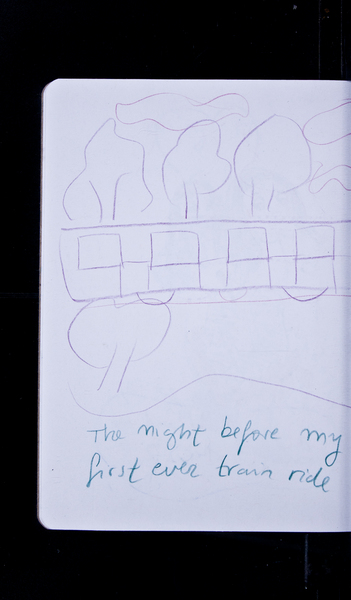 The night before my
first ever train ride